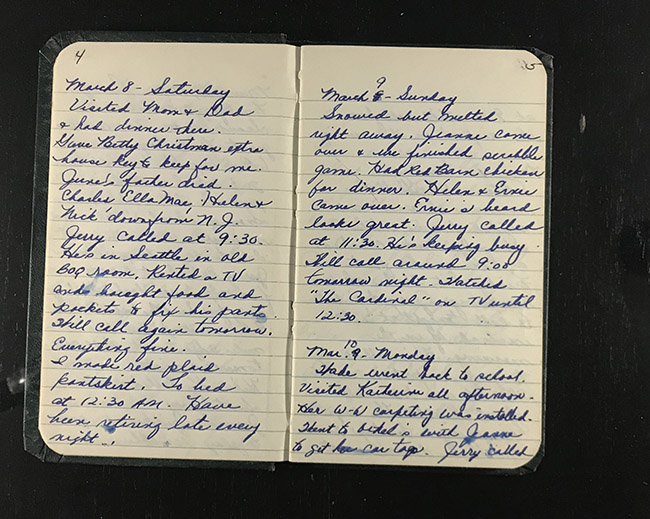 4
March 8 - Saturday
Visited Mom & Dad
& had dinner there.
Gave Betty Christman extra
house key to keep for me.
June's father died.
Charles, Ella Mae, Helen &
Nick down from N.J.
Jerry called at 9:30.
He's in Seattle in old
BOQ room. Rented a TV
and bought food and
pockets to fix his pants.
Will call again tomorrow.
Everything fine.
I made red plaid
pantskirt. To bed
at 12:30 AM. Have
been retiring late every
night.
5
March 9 - Sunday
Snowed but melted
right away. Jeanne came
over & we finished scrabble
game. Had Red Barn Chicken
for dinner. Helen & Ernie
came over. Ernie's beard
looks great. Jerry called
at 11:30. He's keeping busy.
Will call around 9:00
tomorrow night. Watched
"The Cardinal" on TV until
12:30.
Mar. 10 - Monday
went back to school.
Visited Katherine all afternoon.
Her W-W carpeting was installed.
Went to with Jeanne
to get car tags. Jerry called